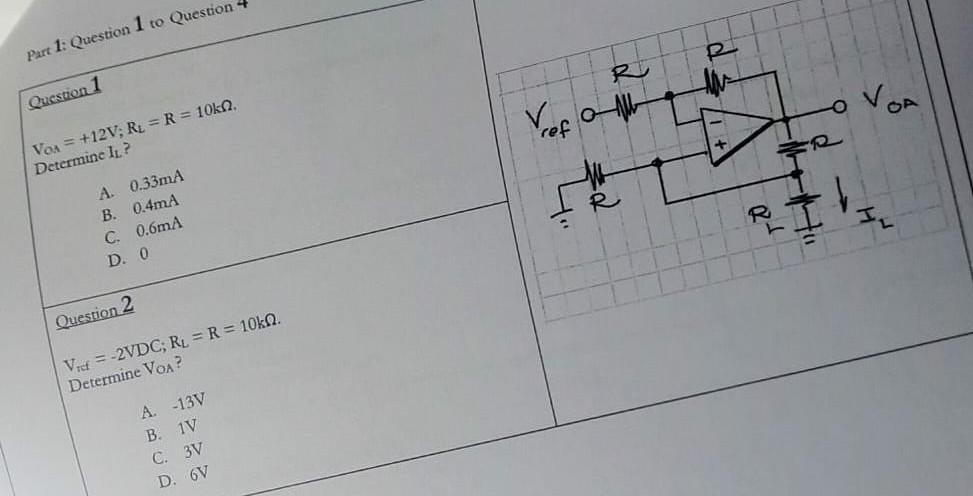 Part 1: Question 1 to Question 4
Question 1
VOA = +12V; RL = R = 10kΩ.
Determine IL?
A. 0.33mA
B. 0.4mA
C. 0.6mA
D. 0
Question 2
Vref = -2VDC; RL = R = 10kΩ.
Determine VOA?
A. -13V
B. 1V
C. 3V
D. 6V
R
R
Vref
-
+
VOA
R
R
RL
IL